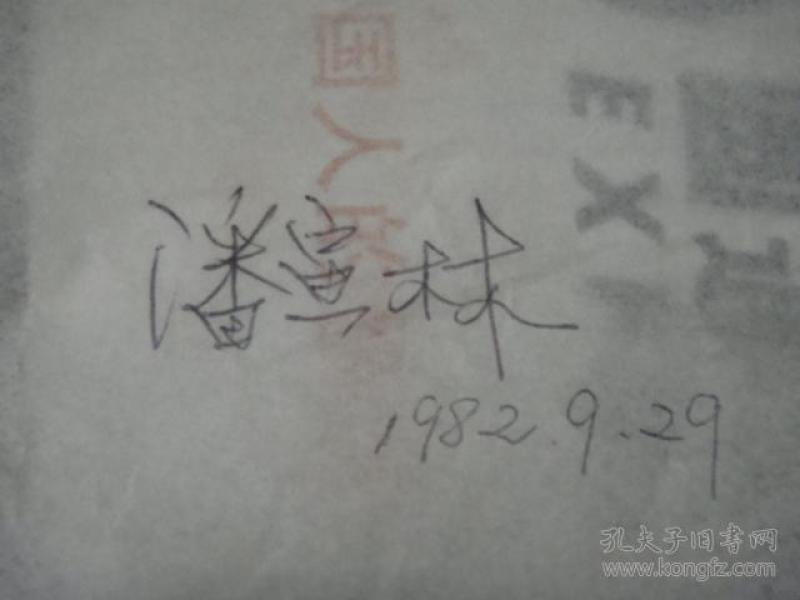 国人
EX
潘寅林
1982.9.29
孔夫子旧书网
www.kongfz.com